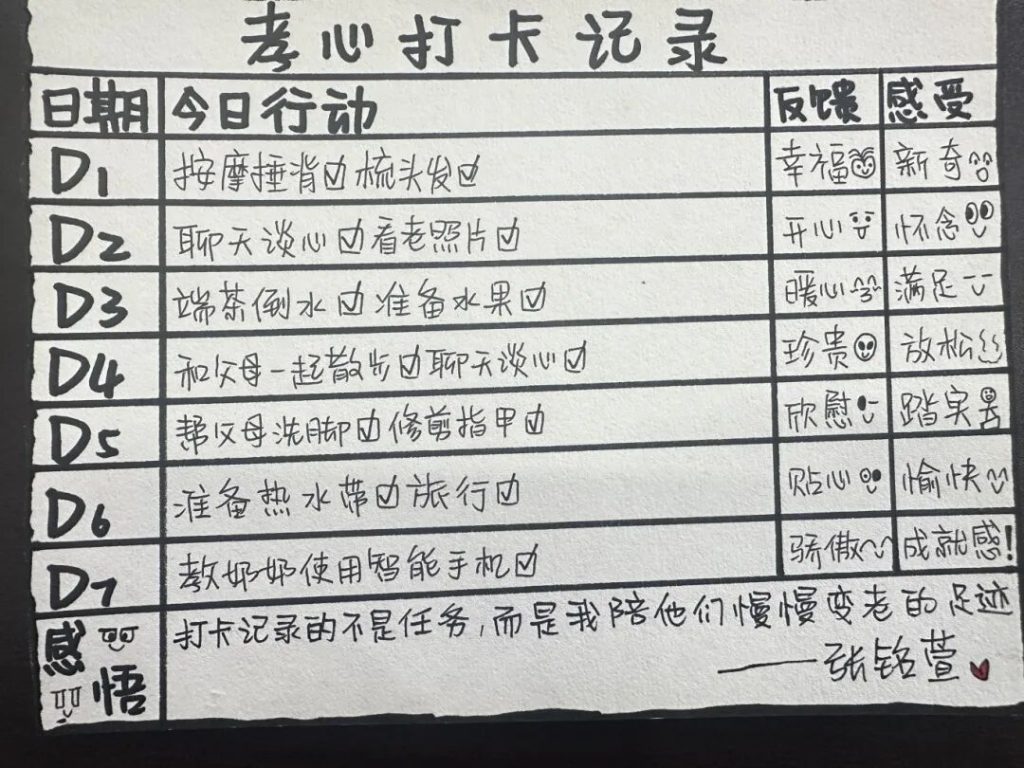 孝心打卡记录
日期 今日行动 反馈 感受
D1 按摩捶背☑梳头发☑ 幸福 新奇
D2 聊天谈心☑看老照片☑ 开心 怀念
D3 端茶倒水☑准备水果☑ 暖心 满足
D4 和父母一起散步☑聊天谈心☑ 珍贵 放松
D5 帮父母洗脚☑修剪指甲☑ 欣慰 踏实
D6 准备热水带☑旅行☑ 贴心 愉快
D7 教奶奶使用智能手机☑ 骄傲 成就感!
感悟 打卡记录的不是任务,而是我陪他们慢慢变老的足迹
——张铭萱